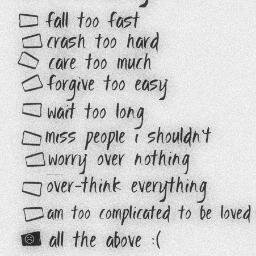 fall too fast
crash too hard
care too much
forgive too easy
wait too long
miss people i shouldn't
worry over nothing
over-think everything
am too complicated to be loved
all the above :(